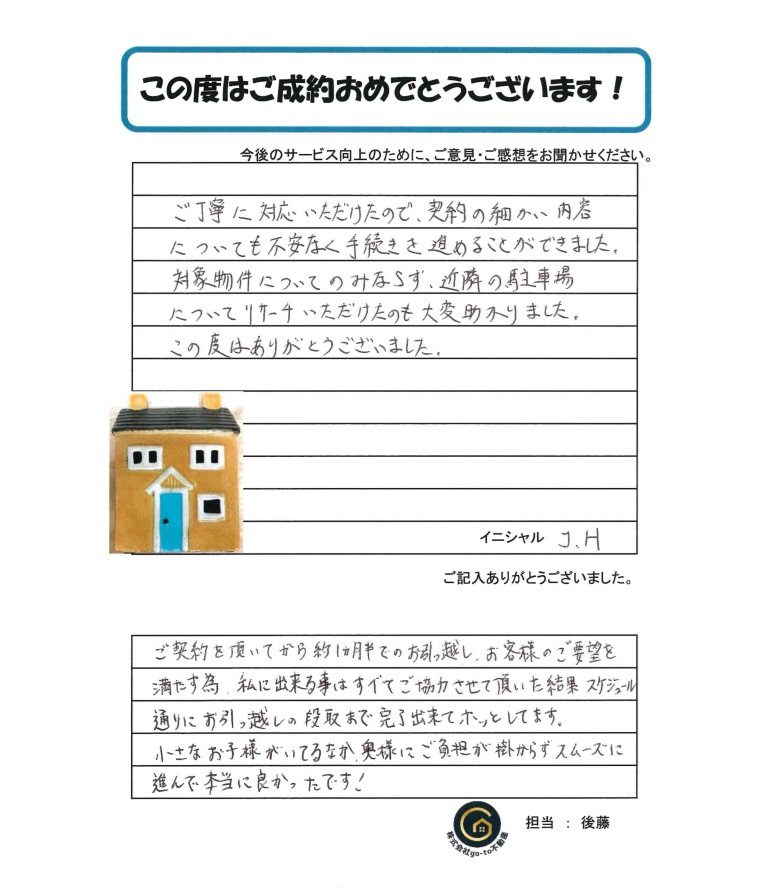 この度はご成約おめでとうございます！
今後のサービス向上のために、ご意見・ご感想をお聞かせください。
ご丁寧に対応いただけたので、契約の細かい内容
についても不安なく手続きを進めることができました。
対象物件についてのみならず、近隣の駐車場
についてリサーチいただけたのも大変助かりました。
この度はありがとうございました。
イニシャル J.H
ご記入ありがとうございました。
ご契約を頂いてから約1ヵ月半でのお引っ越し、お客様のご要望を
満たす為、私に出来る事はすべてご協力させて頂いた結果 スケジュール
通りにお引っ越しの段取まで完了出来てホッとしてます。
小さなお子様がいてるなか、奥様にご負担が掛からずスムーズに
進んで本当に良かったです！
株式会社go-to不動産
担当 ： 後藤